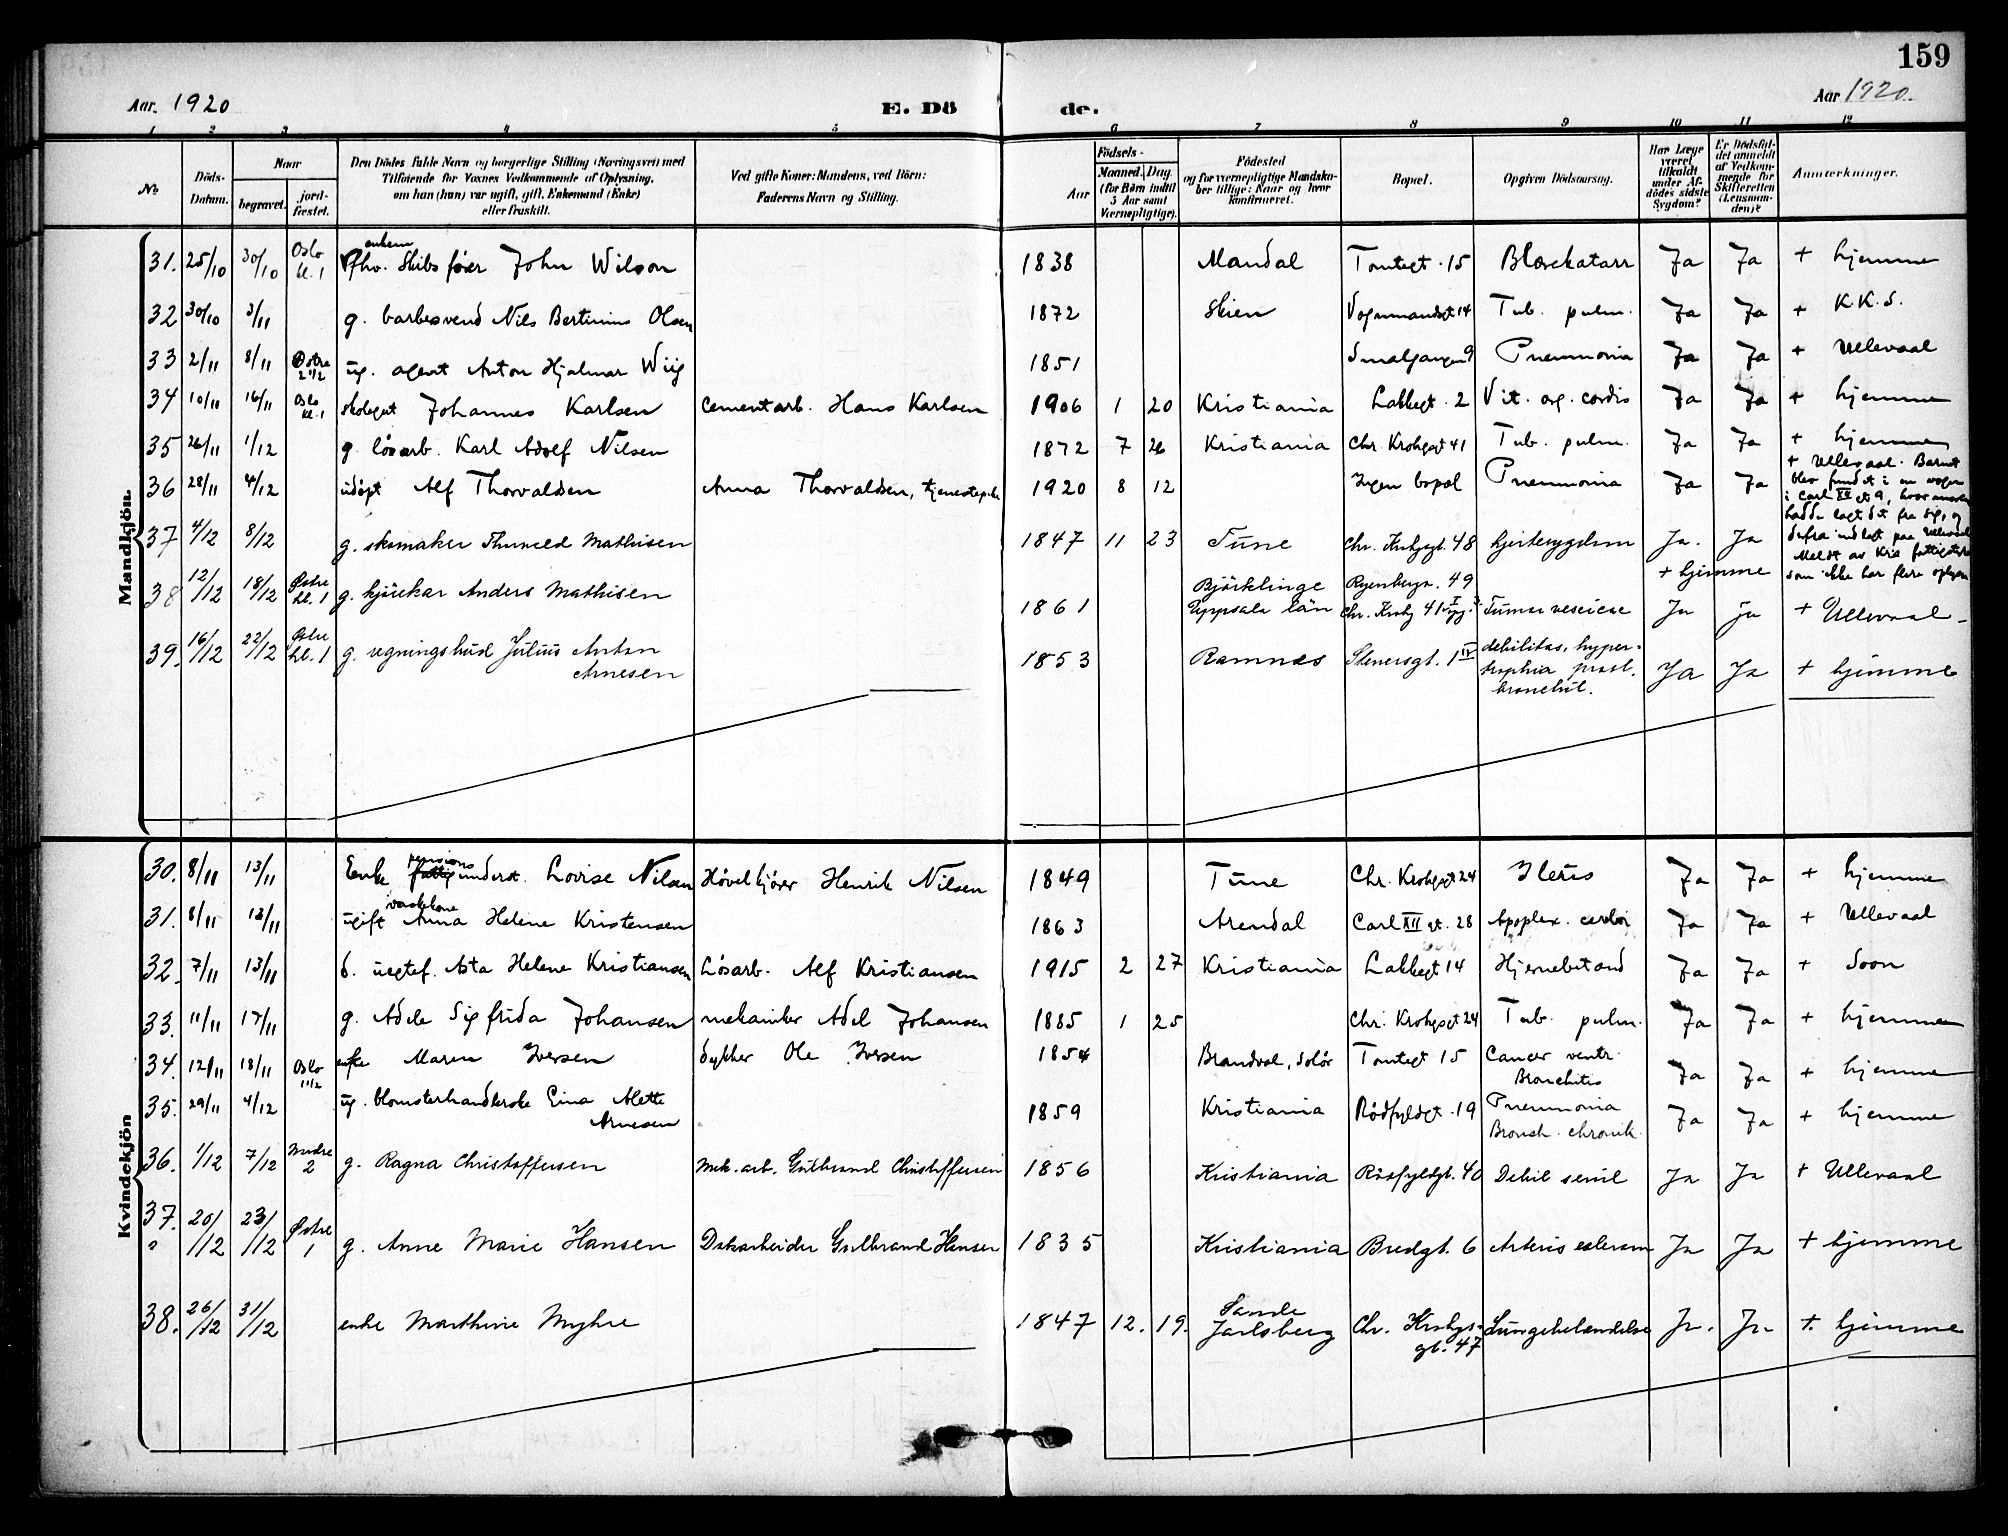 159
Aar. 1920
E. Dö de.
Aar 1920.
1 2 3 4 5 6 7 8 9 10 11 12
No
Döds-Datum.
Naar
begravet.
jord-fæstet.
Den Dödes fulde Navn og borgerlige Stilling (Næringsvei) med
Tilföiende for Voxnes Vedkommende af Oplysning,
om han (hun) var ugift, gift, Enkemand (Enke)
eller fraskilt.
Ved gifte Koner: Mandens, ved Börn:
Faderens Navn og Stilling.
Födsels-
Aar
Maaned. Dag.
(for Börn indtil
5 Aar samt
Værnepligtige).
Födested
og for værnepligtige Mandska-
ber tillige: Naar og hvor
konfirmeret.
Bopæl.
Opgiven Dödsaarsag.
Har Læge
været
tilkaldt
under Af-
dödes sidste
Sygdom?
Er Dödsfal-
det anmeldt
af Vedkom-
mende for
Skifteretten
(Lensman-
den)?
Anmærkninger.
Mandkjön
31. 25/10 30/10 Oslo kl. 1 enkem fhv. Skibsfører John Wilson 1838 Mandal Tomtegt. 15 Blærekatarr Ja Ja + hjemme
32 30/10 3/11 g. barbersvend Nils Bertinius Olsen 1872 Skien Vognmandsgt 14 Tub. pulm. Ja Ja + K.K.S.
33 2/11 8/11 Østre 2 1/2 ug. agent Anton Hjalmar Wiig 1851 Smalgangen 9 Pneumonia Ja Ja + Ullevaal
34 10/11 16/11 Oslo kl. 1 skolegut Johannes Karlsen cementarb. Hans Karlsen 1906 1 20 Kristiania Lakkegt. 2 Vit. org. cordis Ja Ja + hjemme
35 26/11 1/12 g. løsarb. Karl Adolf Nilsen 1872 7 26 Kristiania Chr. Krohgsgt 41 Tub. pulm. Ja Ja + hjemme
36 28/11 4/12 udøpt Alf Thorvaldsen Anna Thorvaldsen, tjenestepike 1920 8 12 Ingen bopæl Pneumonia Ja Ja + Ullevaal. Barnet
blev fundet i en vogn
i Carl XII gt 9, hvor moren
hadde lagt det fra sig, og
derfra indlagt paa Ullevaal
Meldt av Kria fattigstyre
som ikke har flere oplysn
37 4/12 8/12 g. skomaker Thorvald Mathisen 1847 11 23 Tune Chr. Krohgsgt. 48 hjertesygdom Ja. Ja + hjemme
38 12/12 18/12 Østre kl. 1 g. kjørekar Anders Mathisen 1861 Björklinge Uppsala län Ryenbergv. 49 Chr. Krohg 41 Tumor vesicae Ja ja + Ullevaal
39. 16/12 22/12 Østre kl. 1 g. regningsbud Julius Anton Arnesen 1853 Ramnes Stenersgt. 1 IV debilitas, hyper-
trophia prost.
bronchit. Ja Ja + hjemme
Kvindekjön
30. 8/11 13/11 Enke pensions underst. Lovise Nilsen Høvelkjører Henrik Nilsen 1849 Tune Chr. Krohgsgt 24 Ileus Ja Ja + hjemme
31. 8/11 13/11 ugift vaskekone Anna Helene Kristensen 1863 Arendal Carl XII gt. 28 Apoplex. cerebri Ja Ja + Ullevaal
32. 7/11 13/11 d. uegtef. Asta Helene Kristiansen Løsarb. Alf Kristiansen 1915 2 27 Kristiania Lakkegt 14 Hjernebetænd Ja Ja + Soon
33. 11/11 17/11 g. Adele Sigfrida Johansen mekaniker Adel Johansen 1885 1 25 Chr. Krohgsgt 24 Tub. pulm. Ja Ja + hjemme
34. 12/11 18/11 Oslo 1 1/2 enke Maren Iversen dykker Ole Iversen 1854 Brandval, Solør Tomtegt 15 Cancer ventr. Bronchitis Ja Ja + hjemme
35. 29/11 4/12 ug. blomsterhandlerske Eina Alette Arnesen 1859 Kristiania Rødfyldgt. 19 Pneumonia Bronch. chronik. Ja Ja + hjemme
36. 1/12 7/12 Nordre 2 g. Ragna Christoffersen Mek. arb. Gulbrand Christoffersen 1856 Kristiania Rødfyldgt. 40 Debil senil Ja Ja + Ullevaal
37. 20/12 23/12 Østre 1 g. Anne Marie Hansen Dokarbeider Gulbrand Hansen 1835 Kristiania Bredgt. 6 Arterio sclerosis Ja Ja + hjemme
38. 26/12 31/12 enke Marthine Myhre 1847 12. 19. Sande Jarlsberg Chr. Krohgs-gt. 47 Lungebetændelse Ja. Ja + hjemme